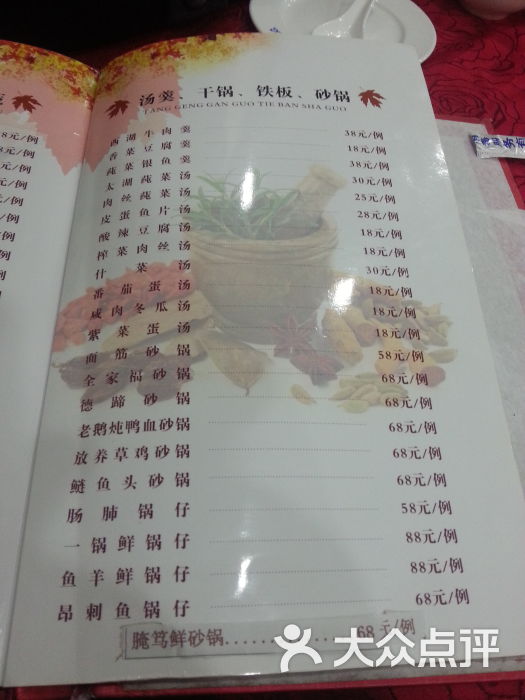 汤羹、干锅、铁板、砂锅
TANG GENG GAN GUO TIE BAN SHA GUO
西湖牛肉羹 38元/例
香菜豆腐羹 18元/例
莼菜银鱼羹 38元/例
太湖莼菜汤 30元/例
肉丝莼菜汤 25元/例
皮蛋鱼片汤 28元/例
酸辣豆腐汤 18元/例
榨菜肉丝汤 18元/例
什菜汤 30元/例
番茄蛋汤 18元/例
咸肉冬瓜汤 18元/例
紫菜蛋汤 18元/例
面筋砂锅 58元/例
全家福砂锅 68元/例
德蹄砂锅 68元/例
老鹅炖鸭血砂锅 68元/例
放养草鸡砂锅 68元/例
鲢鱼头砂锅 68元/例
肠肺锅仔 58元/例
一锅鲜锅仔 88元/例
鱼羊鲜锅仔 88元/例
昂刺鱼锅仔 68元/例
腌笃鲜砂锅............68元/例
大众点评